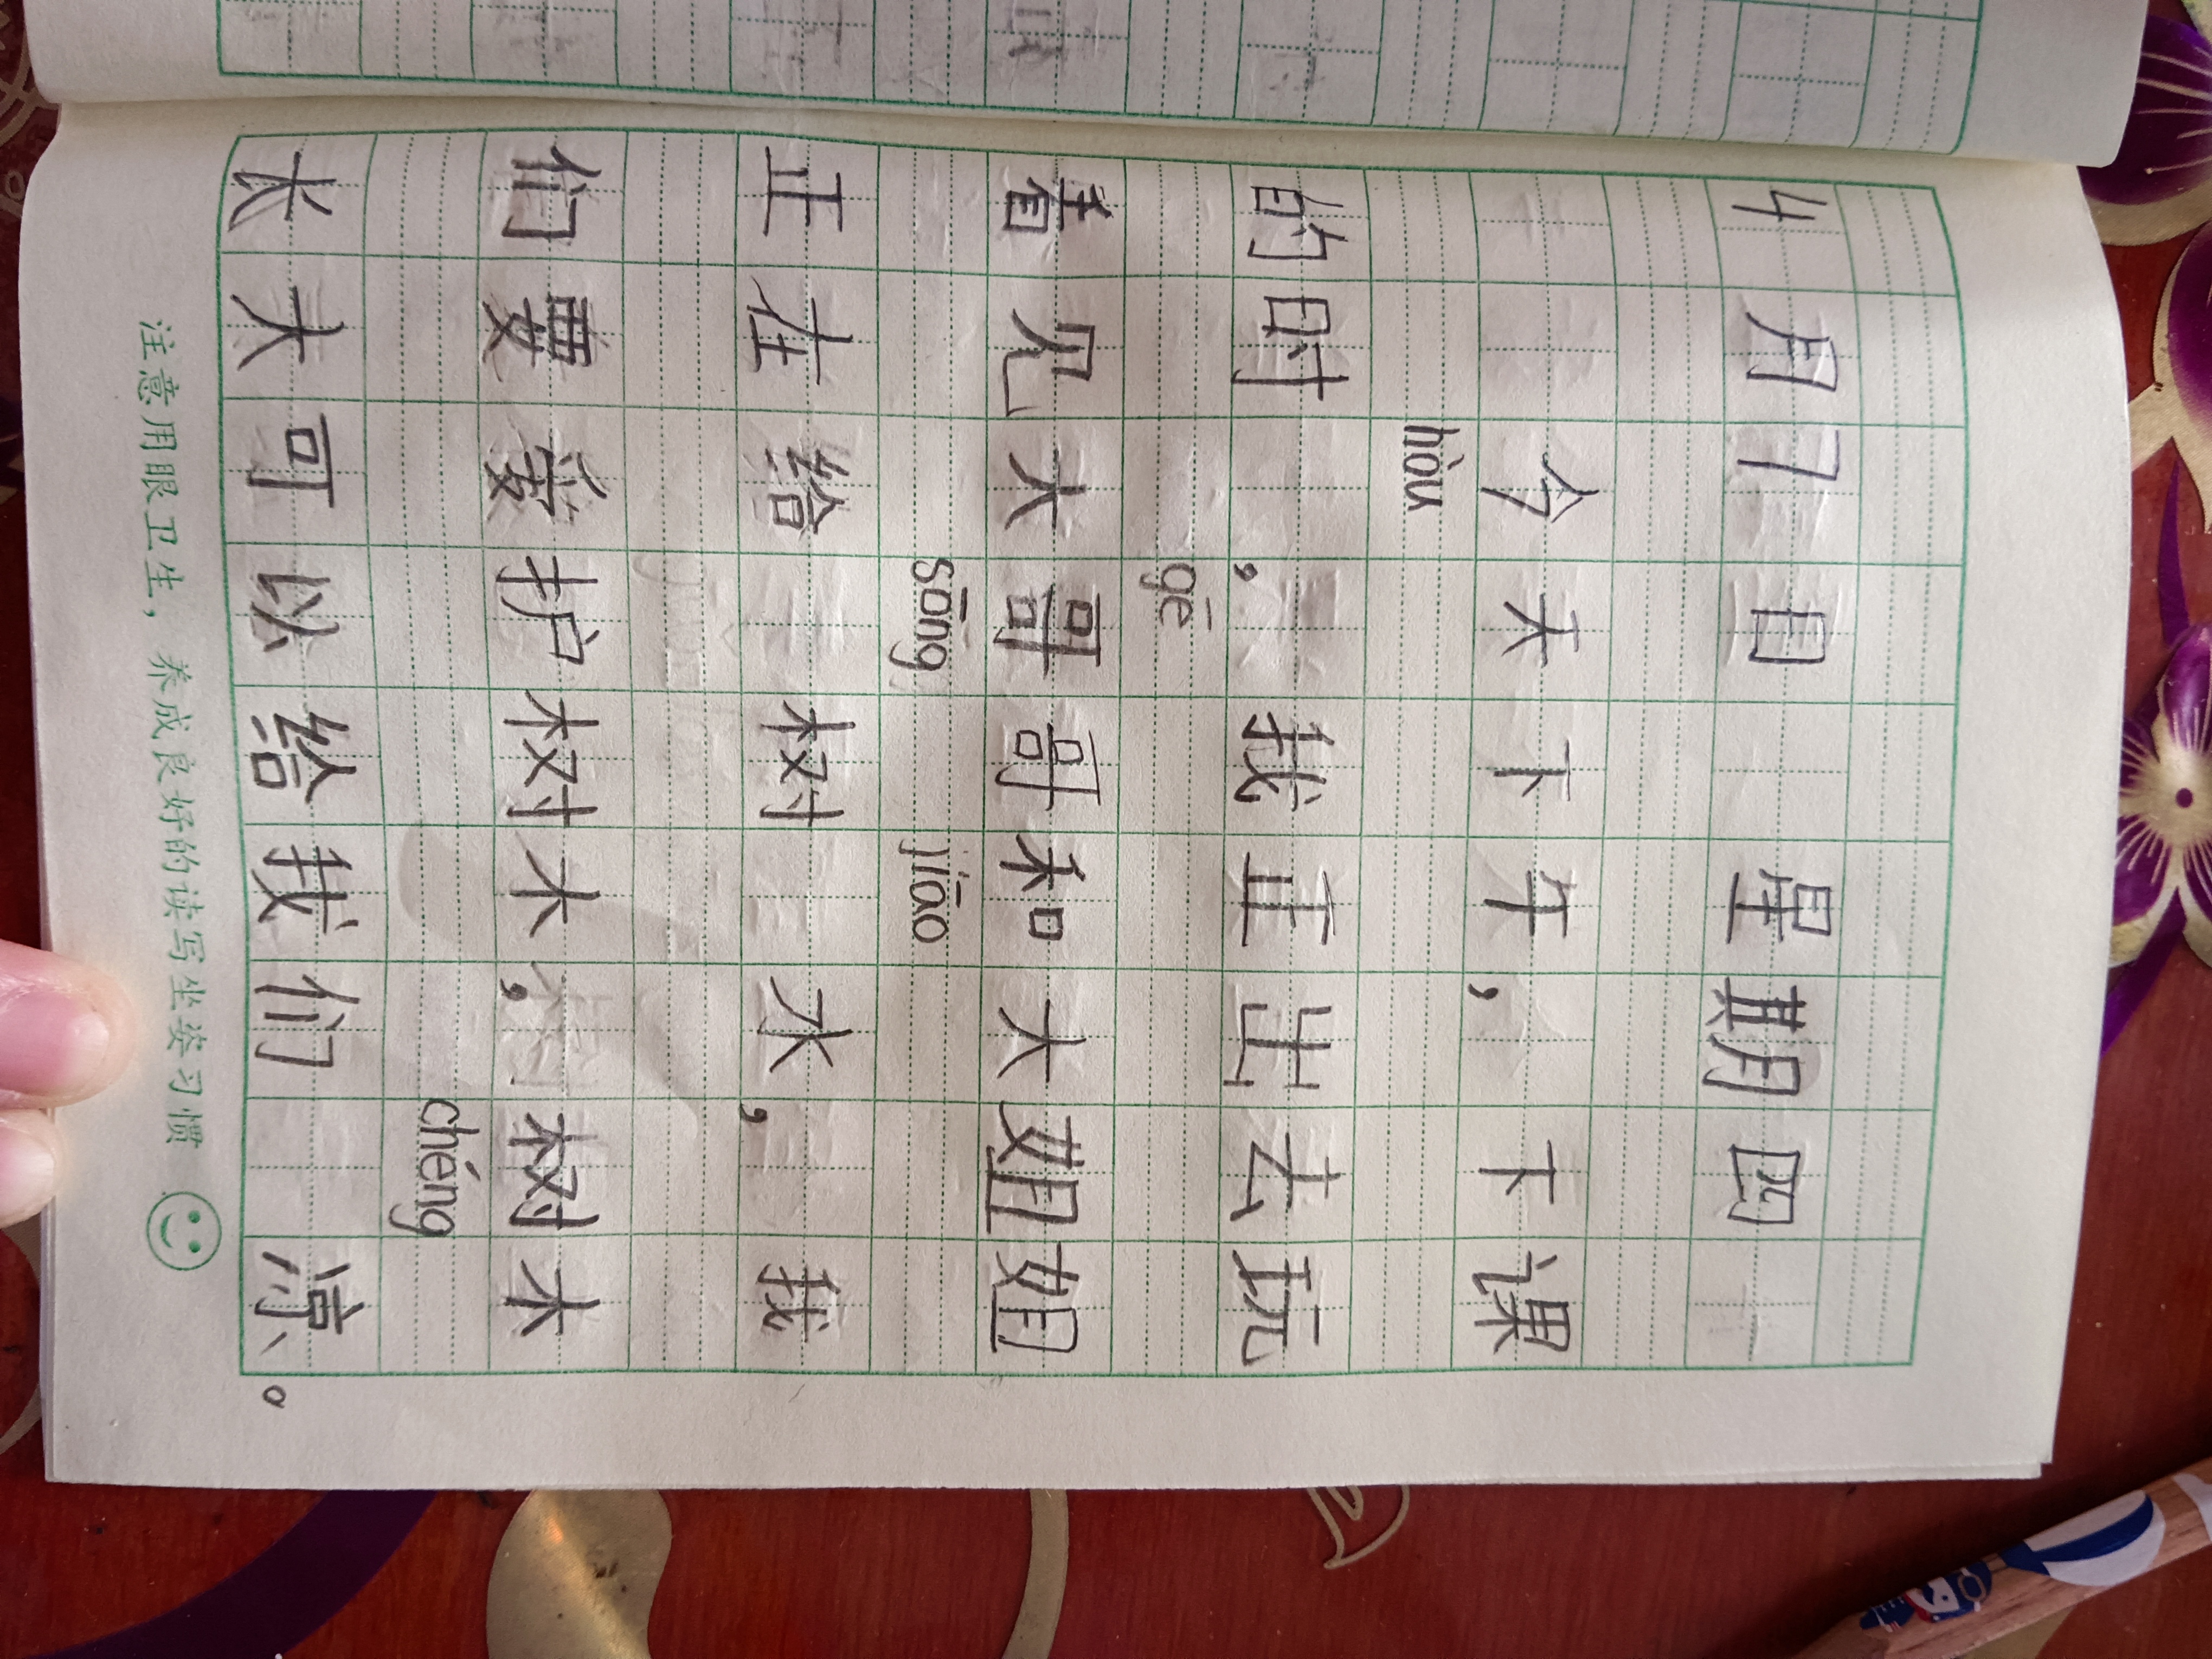 4月7日 星期四
今天下午，下课
hòu
的时，我正出去玩
gē
看见大哥哥和大姐姐
sōng jiāo
正在给 树 水，我
们要爱护树木，树木
chéng
长大可以给我们 凉。
注意用眼卫生，养成良好的读写坐姿习惯